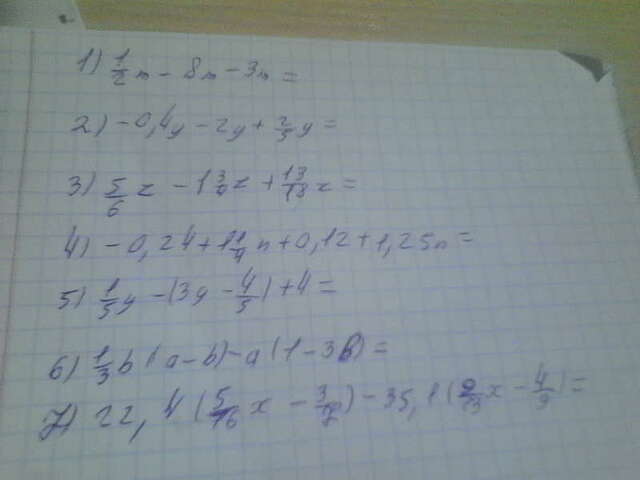 1) 1/2 n - 8n - 3n =
2) -0,4y - 2y + 2/3 y =
3) 5/6 z - 1 3/4 z + 13/13 z =
4) -0,24 + 1 1/4 n + 0,12 + 1,25n =
5) 1/5 y - (3y - 4/5) + 4 =
6) 1/3 b (a - b) - a (1 - 3b) =
7) 22,4 (5/16 x - ) - 35,1 ( x - 4/9) =